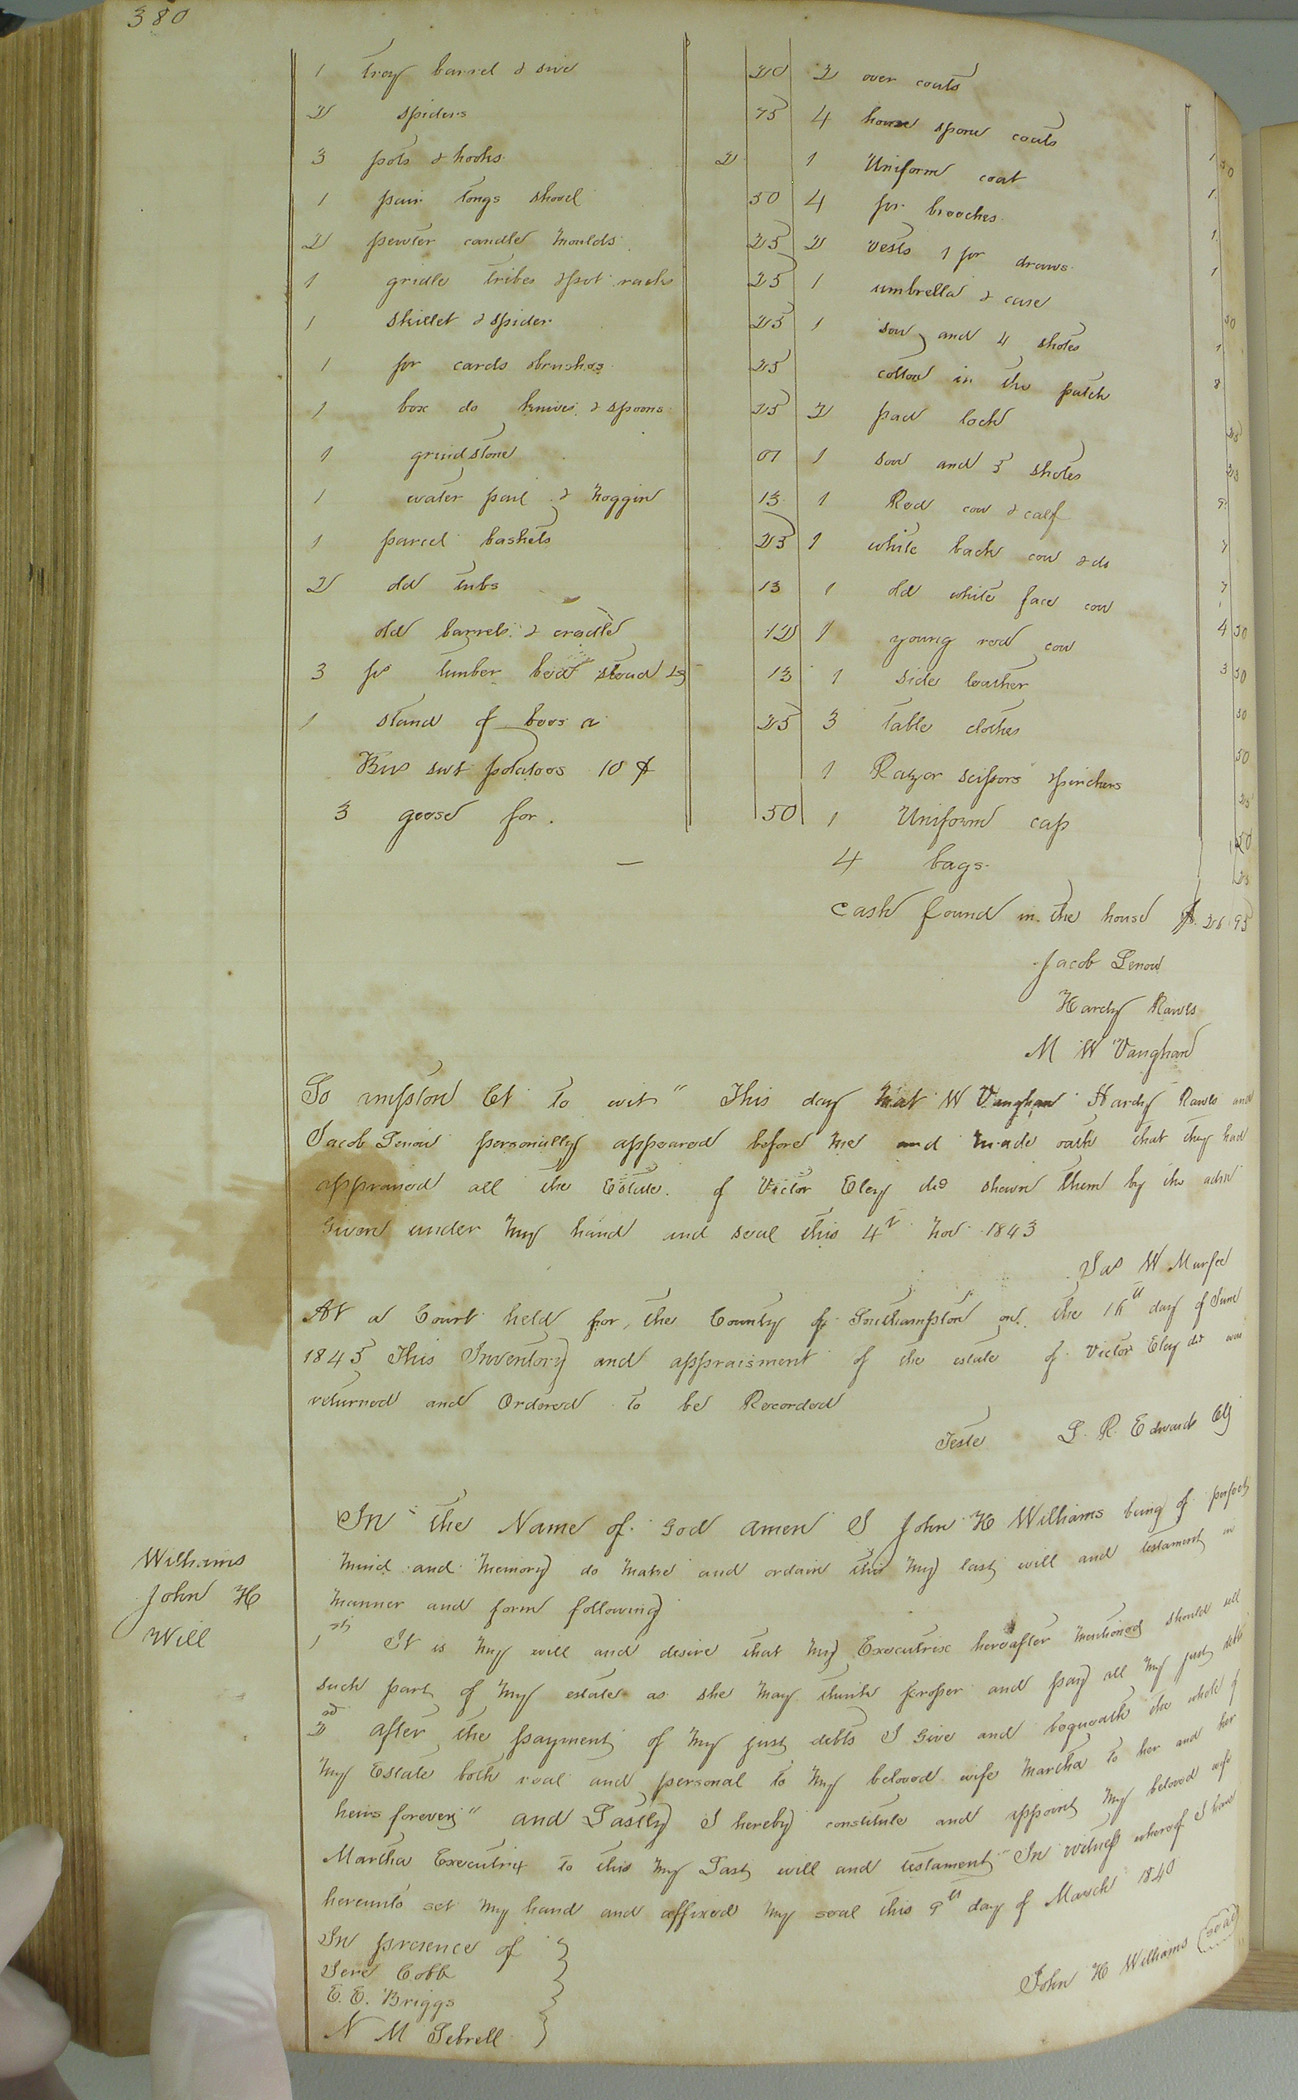 380
1 tray barrel & sive 20
2 spiders 75
3 pots & hooks 2
1 pair tongs shovel 50
2 pewter candle moulds 25
1 gridle tribes & pot racks 25
1 skillet & spider 25
1 pr cards & brushes 25
1 box do knives & spoons 25
1 grindstone 01
1 water pail & noggin 13
1 parcel baskets 25
2 old tubs 13
old barrels & cradle 12
3 ps timber bed stead 13
1 stand of bees a 25
Bus swt potatoes 10 ¢
3 geese for. 50
2 over coats
4 home spone coats 1 50
1 Uniform coat 1
4 pr breeches 1
2 vests 1 pr draws 1
1 umbrella & case 50
1 sow and 4 shotes 1
cotton in the patch 8
2 pad lock 25
1 sow and 5 shotes
1 Red cow & calf 9
1 white back cow & do 7
1 old white face cow 7
1 young red cow 4 50
1 side leather 3 50
3 table clothes 50
1 Razor scissors & pinchers 50
1 Uniform cap 25
4 bags
cash found in the house $ 28 95
Jacob Lenow
Hardy Rawls
M W Vaughan
So umpton Ct to wit" This day Mat W Vaughan Hardy Rawls and
Jacob Lenow personally appeared before me and made oath that they had
appraised all the Estate of Victor Eley decd shewn them by the adm
Given under my hand and seal this 4th Nov 1843
Jas W Murfee
At a Court held for the County of Southampton on the 16th day of June
1845 This Inventory and appraisment of the estate of Victor Eley decd was
returned and Ordered to be Recorded
Teste L. R. Edwards Clk
Williams
John H
Will
In the Name of God amen I John H Williams being of perfect
mind and memory do make and ordain this my last will and testament in
manner and form following
1st It is my will and desire that my Executrix hereafter mentioned should sell
such part of my estate as she may think proper and pay all my just debts
2nd after the payment of my just debts I give and bequeath the whole of
my Estate both real and personal to my beloved wife Martha to her and her
heirs forever" and Lastly I hereby constitute and appoint my beloved wife
Martha Executrix to this my Last will and testament" In witness whereof I have
hereunto set my hand and affixed my seal this 9th day of March 1840
John H Williams (seal)
In presence of
Jere Cobb
E. E. Briggs
N M Sebrell